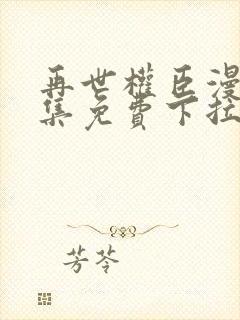 再世權臣漫
集免費下拉
芳苓